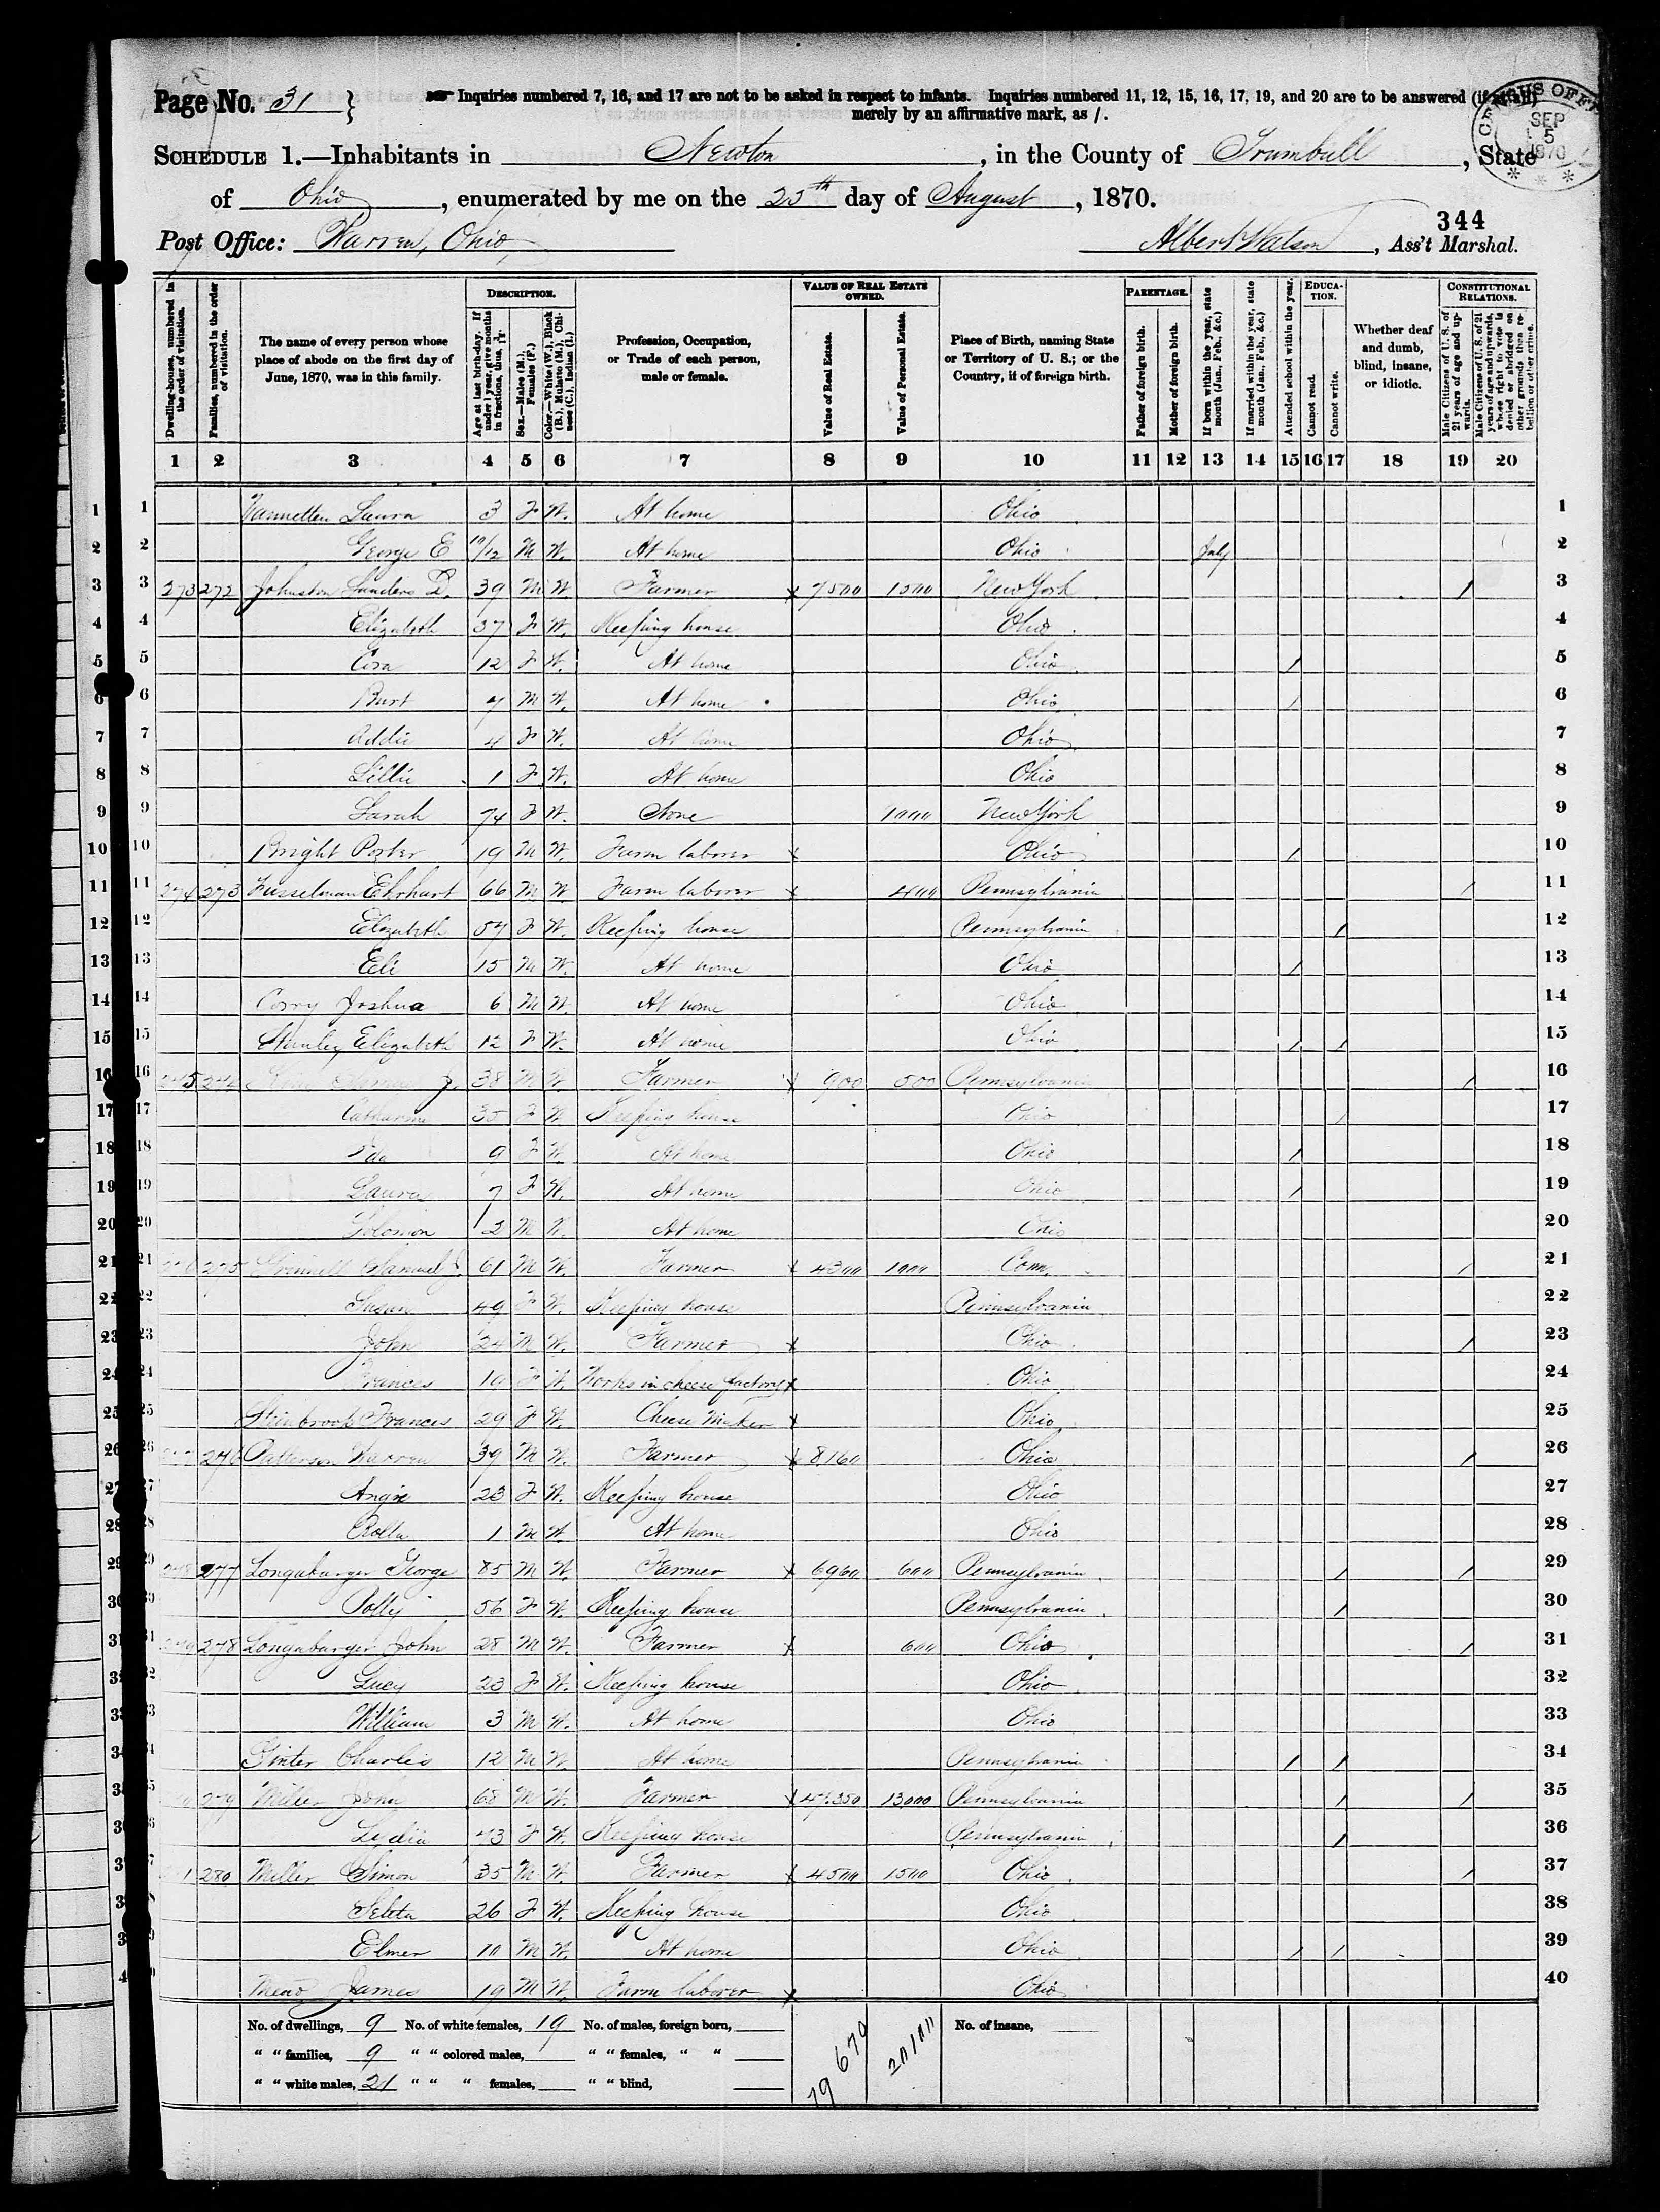 Page No. 31 } Inquiries numbered 7, 16, and 17 are not to be asked in respect to infants. Inquiries numbered 11, 12, 15, 16, 17, 19, and 20 are to be answered (if at all)
merely by an affirmative mark, as /.
CENSUS OFFICE SEP 5 1870
SCHEDULE 1.—Inhabitants in Newton, in the County of Trumbull, State
of Ohio, enumerated by me on the 25th day of August, 1870.
344
Post Office: Warren, Ohio Albert Watson, Ass't Marshal.
Dwelling-houses, numbered in the order of visitation.
Families, numbered in the order of visitation.
The name of every person whose place of abode on the first day of June, 1870, was in this family.
DESCRIPTION.
Age at last birth-day. If under 1 year, give months in fractions, thus, 3/12.
Sex.—Males (M.), Females (F.)
Color.—White (W.), Black (B.), Mulatto (M.), Chinese (C.), Indian (I.)
Profession, Occupation, or Trade of each person, male or female.
VALUE OF REAL ESTATE OWNED.
Value of Real Estate.
Value of Personal Estate.
Place of Birth, naming State or Territory of U. S.; or the Country, if of foreign birth.
PARENTAGE.
Father of foreign birth.
Mother of foreign birth.
If born within the year, state month (Jan., Feb., &c.)
If married within the year, state month (Jan., Feb., &c.)
Attended school within the year.
EDUCATION.
Cannot read.
Cannot write.
Whether deaf and dumb, blind, insane, or idiotic.
CONSTITUTIONAL RELATIONS.
Male Citizens of U. S. of 21 years of age and upwards.
Male Citizens of U. S. of 21 years of age and upwards, whose right to vote is denied or abridged on other grounds than rebellion or other crime.
1 2 3 4 5 6 7 8 9 10 11 12 13 14 15 16 17 18 19 20
1 Vannetten Laura 3 F W. At home Ohio 1
2 George E 10/12 M W. At home Ohio July 2
3 273 272 Johnston Sanders D. 39 M W. Farmer x 7500 1500 New York / 3
4 Elizabeth 37 F W. Keeping house Ohio 4
5 Cora 12 F W. At home Ohio / 5
6 Burt 7 M W. At home Ohio / 6
7 Addie 4 F W. At home Ohio 7
8 Lillie 1 F W. At home Ohio 8
9 Sarah 74 F W. None 1000 New York 9
10 Bright Porter 19 M W. Farm laborer x Ohio / 10
11 274 273 Fusselman Ehrhart 66 M W. Farm laborer x 400 Pennsylvania / 11
12 Elizabeth 57 F W. Keeping house Pennsylvania / 12
13 Eli 15 M W. At home Ohio / 13
14 Corry Joshua 6 M W. At home Ohio 14
15 Elizabeth 12 F W. At home Ohio / / 15
16 275 274 J. 38 M W. Farmer x 900 500 Pennsylvania / 16
17 Catharine 35 F W. Keeping house Ohio / 17
18 Ida 9 F W. At home Ohio / 18
19 Laura 7 F W. At home Ohio / 19
20 Solomon 2 M W. At home Ohio 20
21 276 275 61 M W. Farmer x 4300 1000 Conn. / 21
22 Susan 49 F W. Keeping house Pennsylvania 22
23 John 24 M W. Farmer x Ohio / 23
24 Frances 19 F W. Works in cheese factory x Ohio 24
25 Frances 29 F W. Cheese Maker x Ohio 25
26 277 276 Patterson Warren 39 M W. Farmer x 8160 Ohio / 26
27 Angie 23 F W. Keeping house Ohio 27
28 Rolla 1 M W. At home Ohio 28
29 278 277 Longabarger George 85 M W. Farmer x 6960 600 Pennsylvania / / 29
30 Polly 56 F W. Keeping house Pennsylvania / 30
31 279 278 Longabarger John 28 M W. Farmer x 600 Ohio / 31
32 Lucy 23 F W. Keeping house Ohio 32
33 William 3 M W. At home Ohio 33
34 Ginter Charles 12 M W. At home Pennsylvania / / 34
35 279 Miller John 68 M W. Farmer x 47.350 13000 Pennsylvania / / 35
36 Lydia 43 F W. Keeping house Pennsylvania / 36
37 1 280 Miller Simon 35 M W. Farmer x 4500 1500 Ohio / 37
38 Seleta 26 F W. Keeping house Ohio 38
39 Elmer 10 M W. At home Ohio / / 39
40 Mead James 19 M W. Farm laborer x Ohio 40
No. of dwellings, 9 No. of white females, 19 No. of males, foreign born, 79 670 20100 No. of insane,
" " families, 9 " " colored males, " " females, " "
" " white males, 21 " " " females, " " blind,